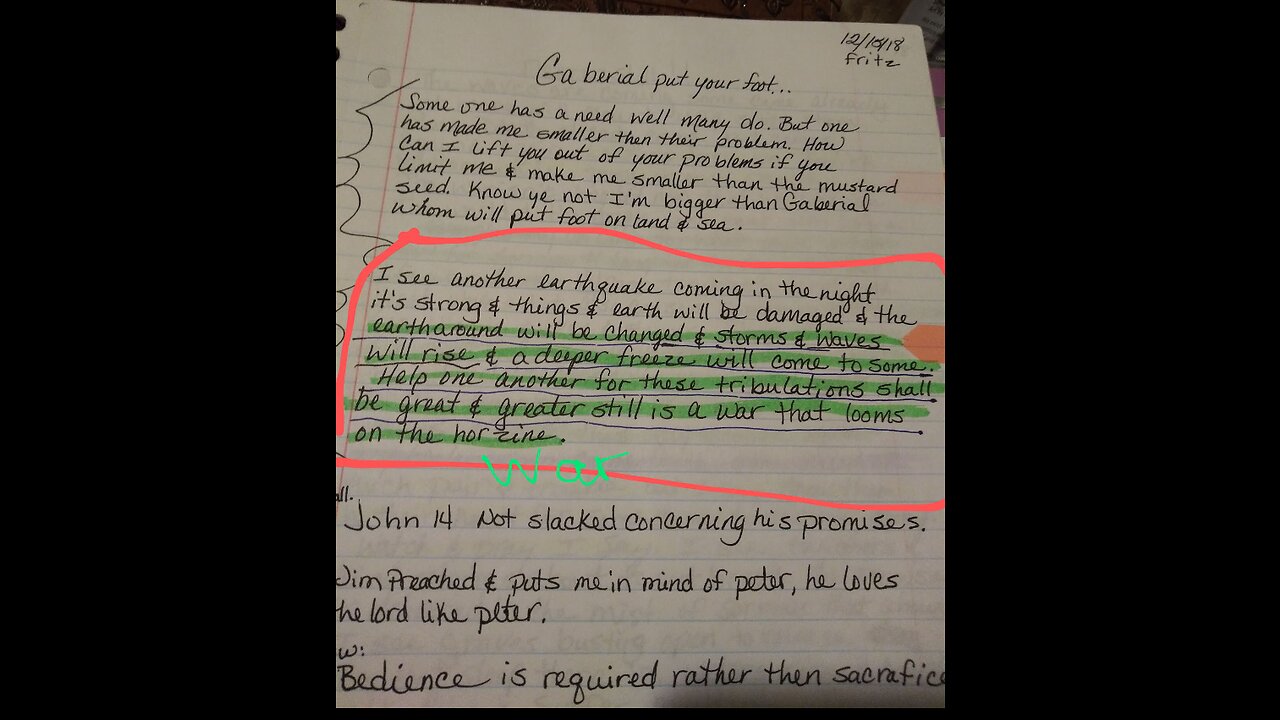 12/18/18
Fritz
Gaberial put your foot...
Some one has a need well many do. But one
has made me smaller then their problem. How
can I Lift you out of your problems if you
limit me & make me smaller than the mustard
seed. Know ye not I'm bigger than Gaberial
whom will put foot on land & sea.
I see another earthquake coming in the night
it's strong & things & earth will be damaged & the
earth around will be changed & storms & waves
will rise & a deeper freeze will come to some.
Help one another for these tribulations shall
be great & greater still is a war that looms
on the horzine.
War
all.
John 14 Not slacked concerning his promises.
Jim Preached & puts me in mind of peter, he loves
the lord like peter.
w:
Bedience is required rather then sacrafice